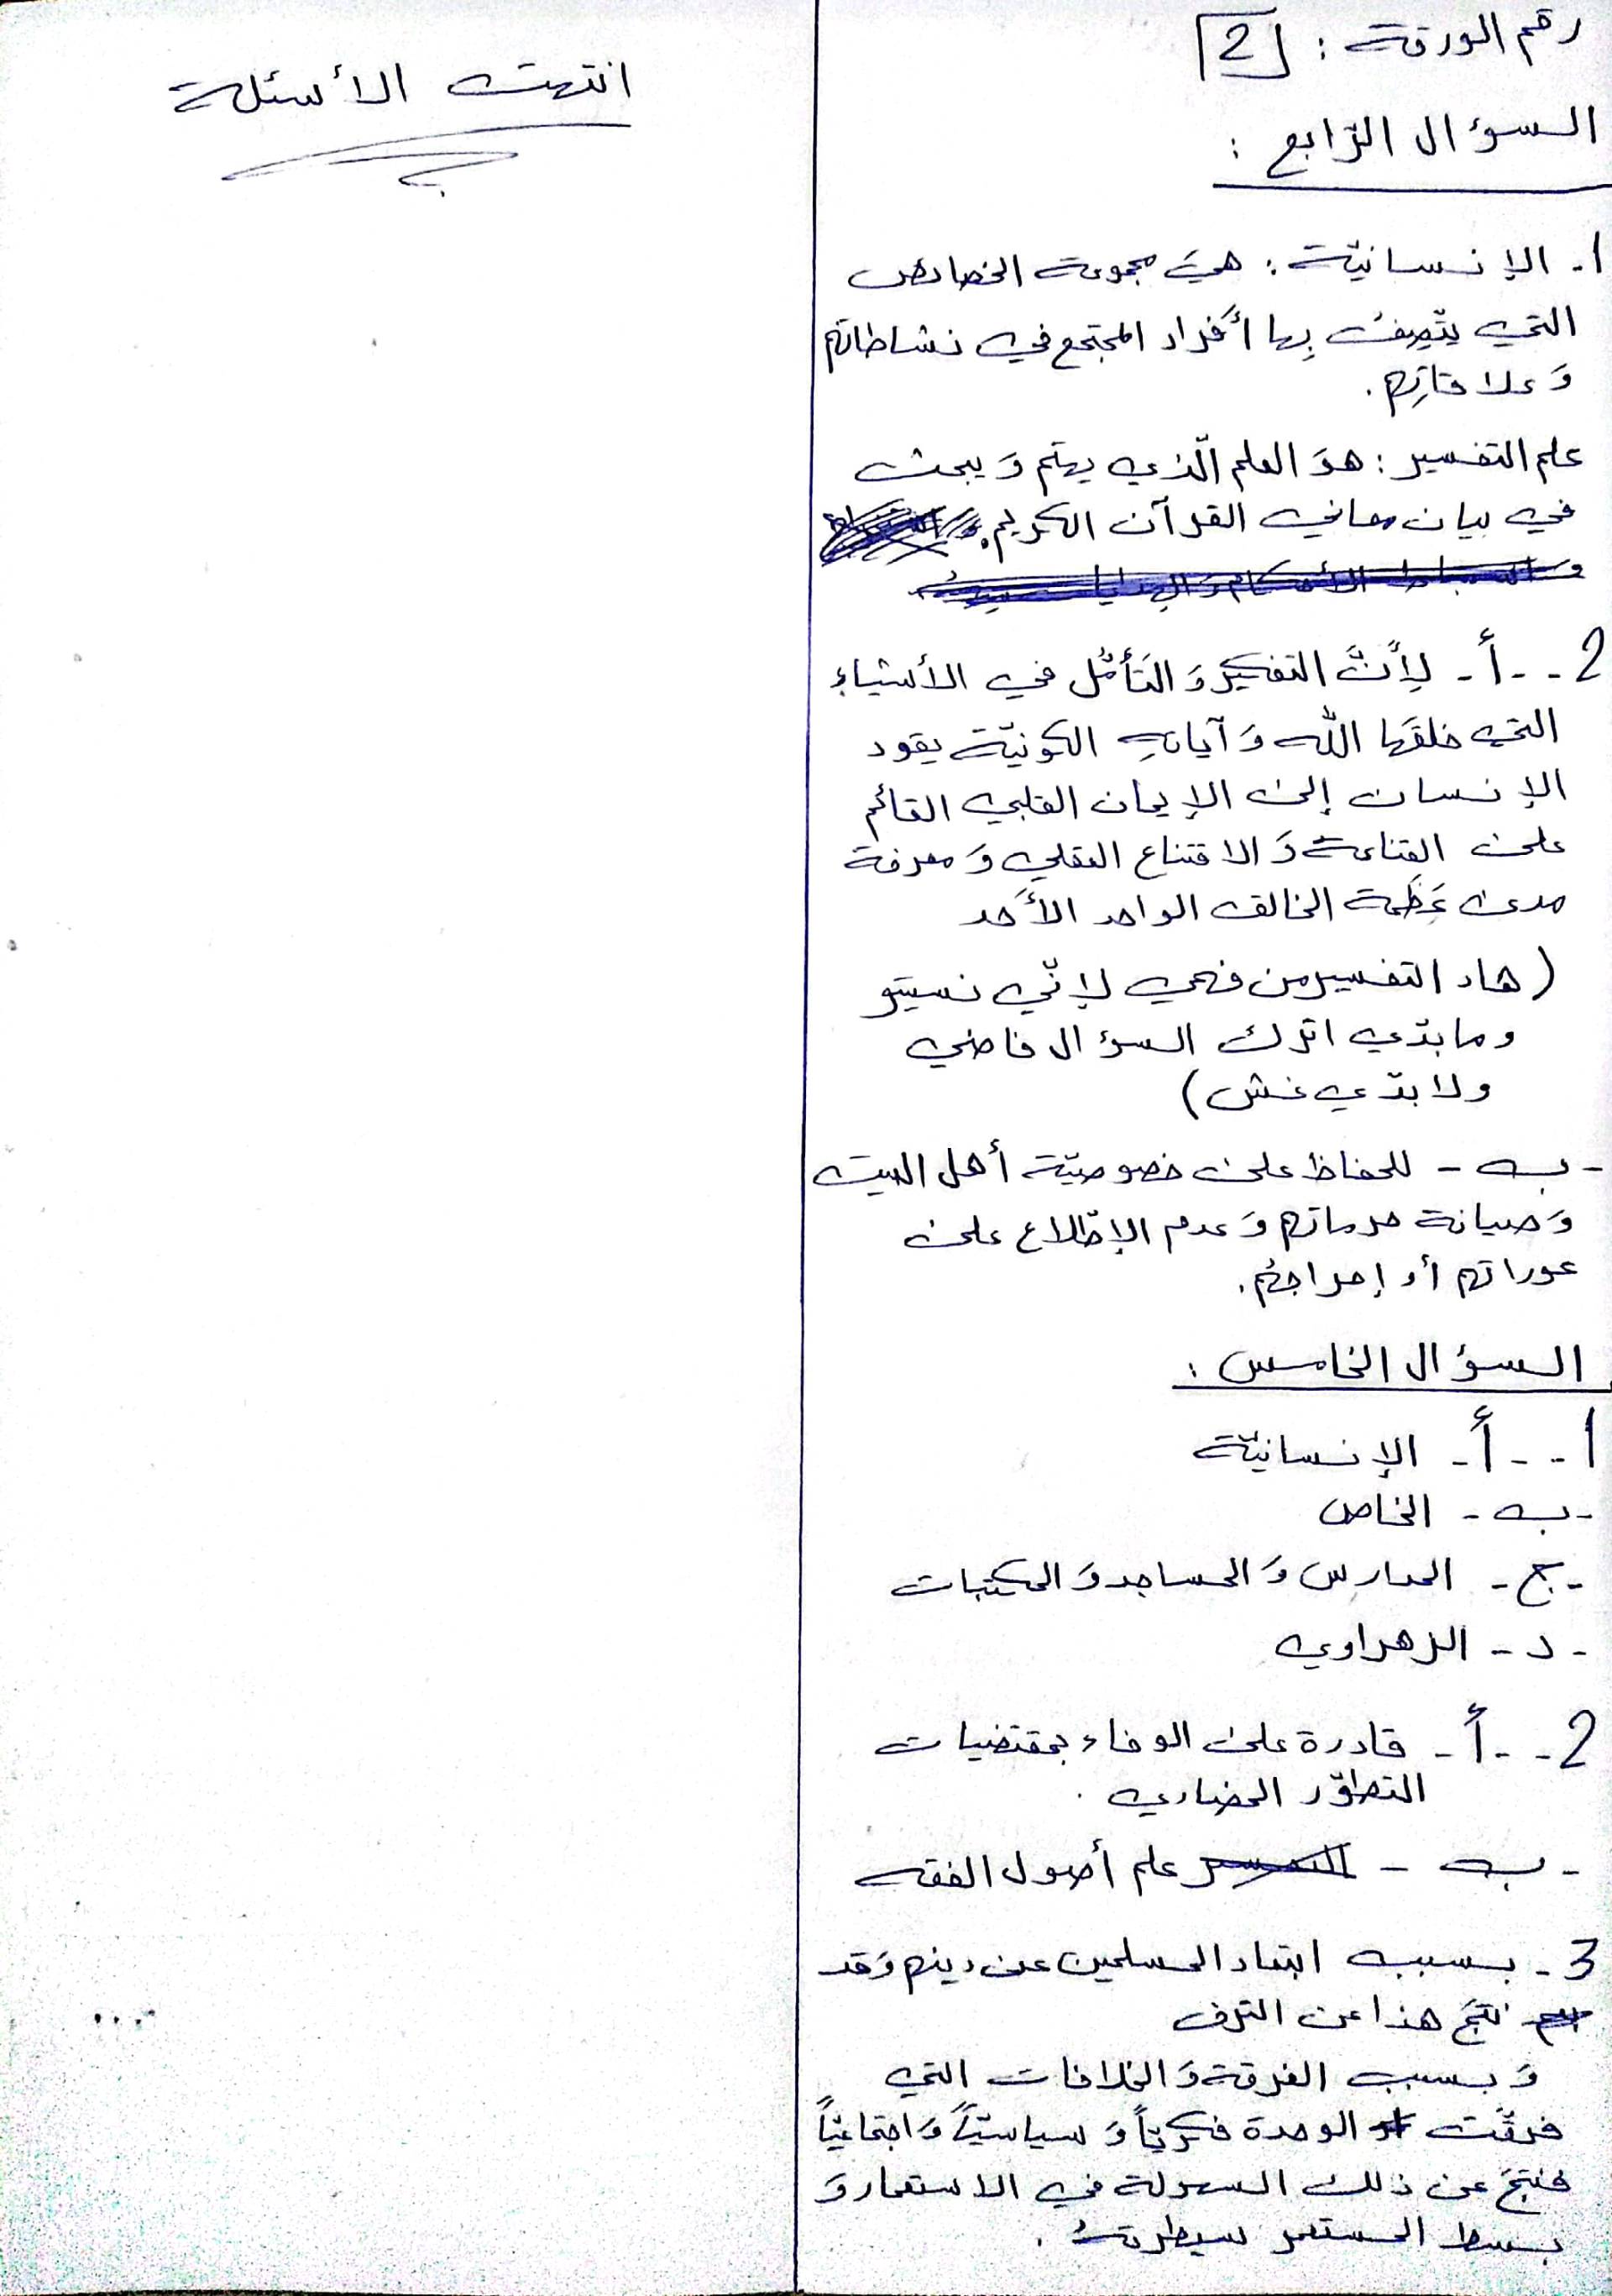 رقم الورقة : 2
السؤال الرّابع :
1. الإنسانيّة : هيَ مجموعة الخصائص
التي يتّصِفُ بِها أَفراد المجتمع في نشاطاتهم
وَ علاقاتِهم .
علم التفسير : هوَ العلم الّذي يهتم وَ يبحث
في بيان معاني القرآن الكريم .
2 - - أ - لِأَنَّ التفكير وَ التَأمّل في الأشياء
التي خلقَها اللّه وَ آياتِهِ الكونيّة يقود
الإنسان إلى الإيمان القلبي القائم
على القناعة وَ الاقتناع العقلي وَ معرفة
مدى عَظَمة الخالق الواحد الأَحد
( هاد التفسير من فهمي لإنّي نسيتو
وما بدّي اترك السؤال فاضي
ولا بدّي غش )
- ب - للحفاظ على خصوصيّة أهل البيت
وَ صيانة حرماتهم وَ عدم الإطّلاع على
عوراتهم أو إحراجهُم .
السؤال الخامس :
1 - - أ - الإنسانيّة
- ب - الخاص
- ج - المدارس وَ المساجد وَ المكتبات
- د - الزهراوي
2 - - أ - قادرة على الوفاء بمقتضيات
التطوّر الحضاري .
- ب - علم أصول الفقه
3 - بسبب ابتعاد المسلمين عن دينهم وَ قد
نتجَ هذا عن الترف
وَ بسبب الفرقة وَ الخلافات التي
فرقّت الوحدة فكريّاً وَ سياسيّاً وَ اجتماعيّاً
فنتجَ عن ذلك السهولة في الاستعمار وَ
بسط المستعمر سيطرتهُ .
انتهت الأسئلة